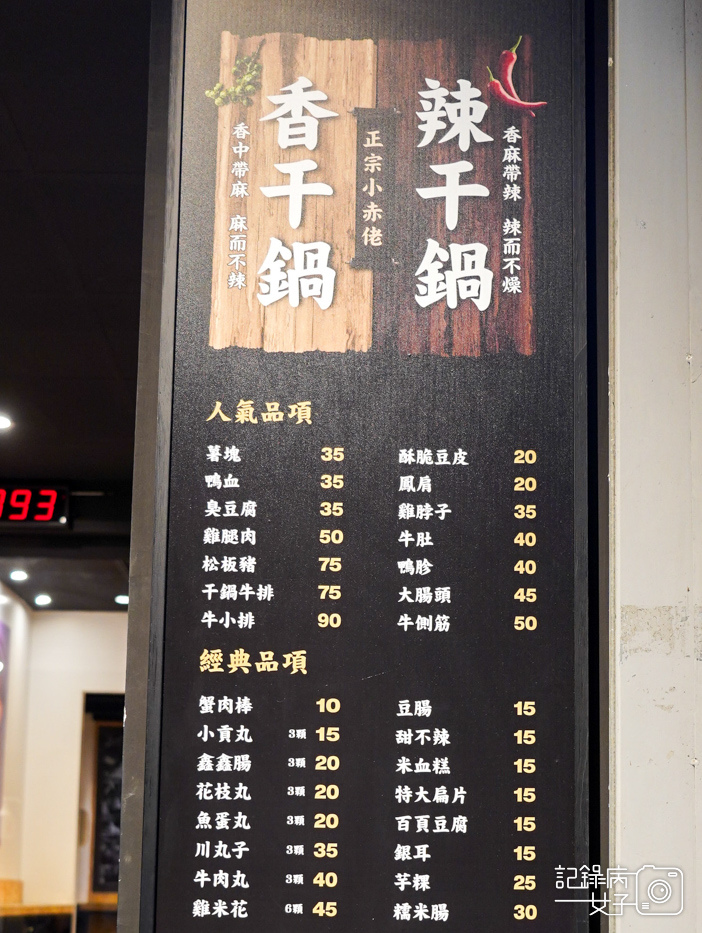 香麻帶辣 辣而不燥
辣干鍋
正宗小赤佬
香干鍋
香中帶麻 麻而不辣
人氣品項
薯塊 35
鴨血 35
臭豆腐 35
雞腿肉 50
松板豬 75
干鍋牛排 75
牛小排 90
酥脆豆皮 20
鳳肩 20
雞脖子 35
牛肚 40
鴨胗 40
大腸頭 45
牛側筋 50
經典品項
蟹肉棒 10
小貢丸 3顆 15
鑫鑫腸 3顆 20
花枝丸 3顆 20
魚蛋丸 3顆 20
川丸子 3顆 35
牛肉丸 3顆 40
雞米花 6顆 45
豆腸 15
甜不辣 15
米血糕 15
特大扁片 15
百頁豆腐 15
銀耳 15
芋粿 25
糯米腸 30
993
記錄病
女子